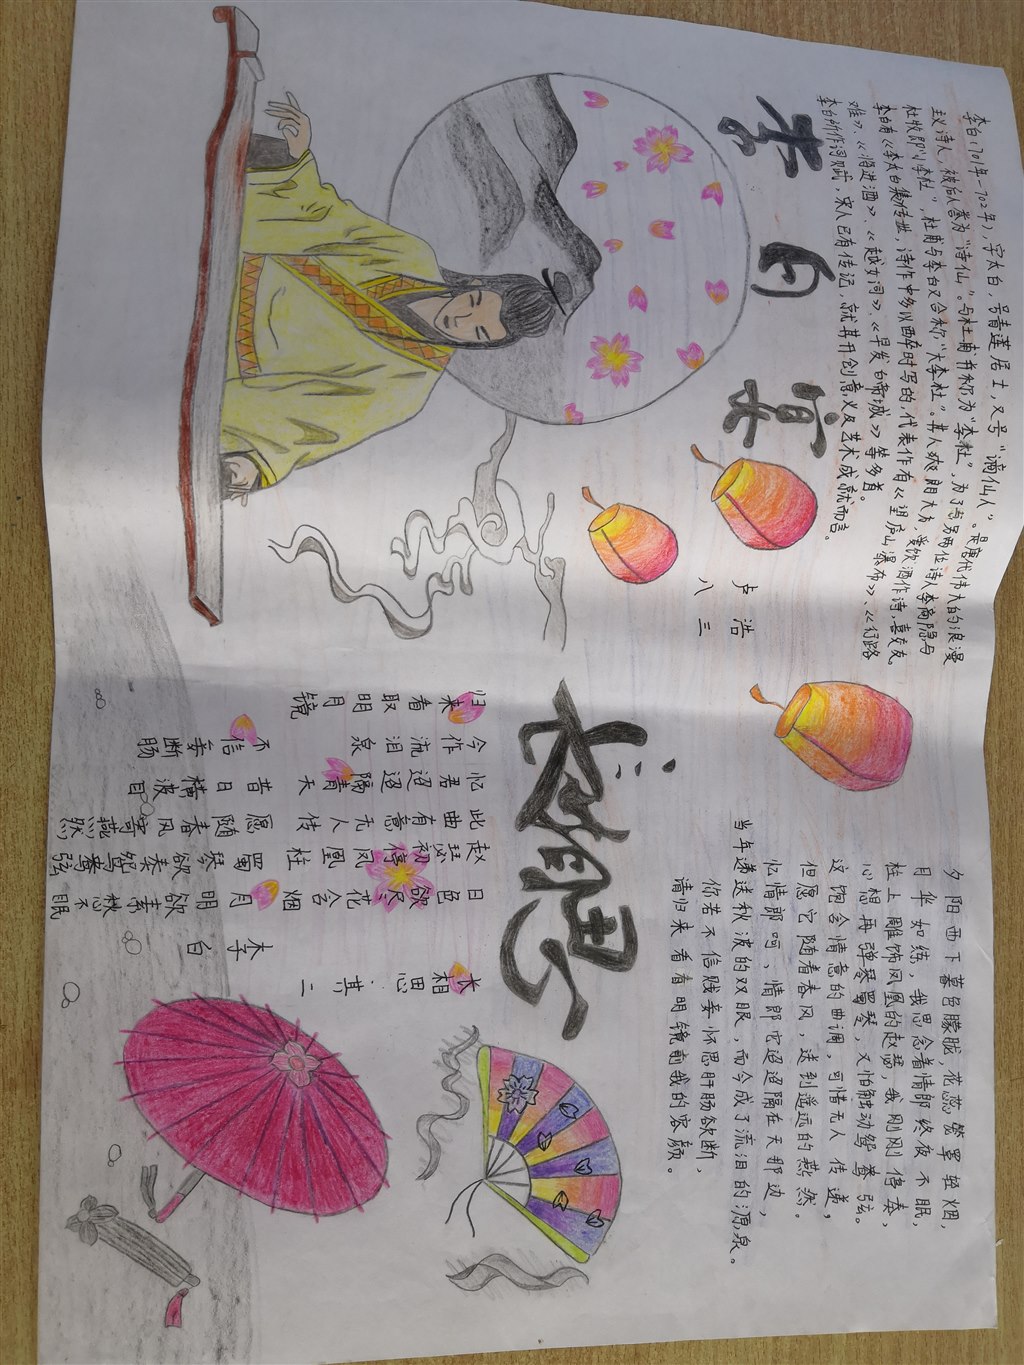 李白(701年—762年),字太白,号青莲居士,又号“谪仙人”。是唐代伟大的浪漫
主义诗人,被后人誉为“诗仙”。与杜甫并称为“李杜”,为了与另两位诗人李商隐与
杜牧即“小李杜”,杜甫与李白又合称“大李杜”。其人爽朗大方,爱饮酒作诗,喜交友。
李白有《李太白集》传世,诗作中多以醉时写的,代表作有《望庐山瀑布》、《行路
难》、《将进酒》、《越女词》、《早发白帝城》等多首。
李白所作词赋,宋人已有传记,就其开创意义及艺术成就而言。
李白篇
卢浩
八三
长相思
夕阳西下暮色朦胧,花蕊笼罩轻烟,
月华如练,我思念着情郎终夜不眠,
柱上雕饰凤凰的赵瑟,我刚刚停奏,
心想再弹奏蜀琴,又怕触动鸳鸯弦。
这饱含情意的曲调,可惜无人传递,
但愿它随着春风,送到遥远的燕然。
忆情郎呵、情郎它迢迢隔在天那边,
当年递送秋波的双眼,而今成了流泪的源泉。
你若不信贱妾怀思肝肠欲断,
请归来看看明镜前我的容颜。
长相思·其二
李白
日色欲尽花含烟 月明欲素愁不眠
赵瑟初停凤凰柱 蜀琴欲奏鸳鸯弦
此曲有意无人传 愿随春风寄燕然
忆君迢迢隔青天 昔日横波目
今作流泪泉 不信妾断肠
归来看取明月镜